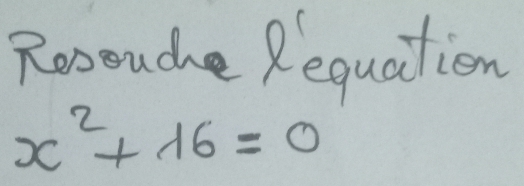 Resoudre l'equation
x² + 16 = 0